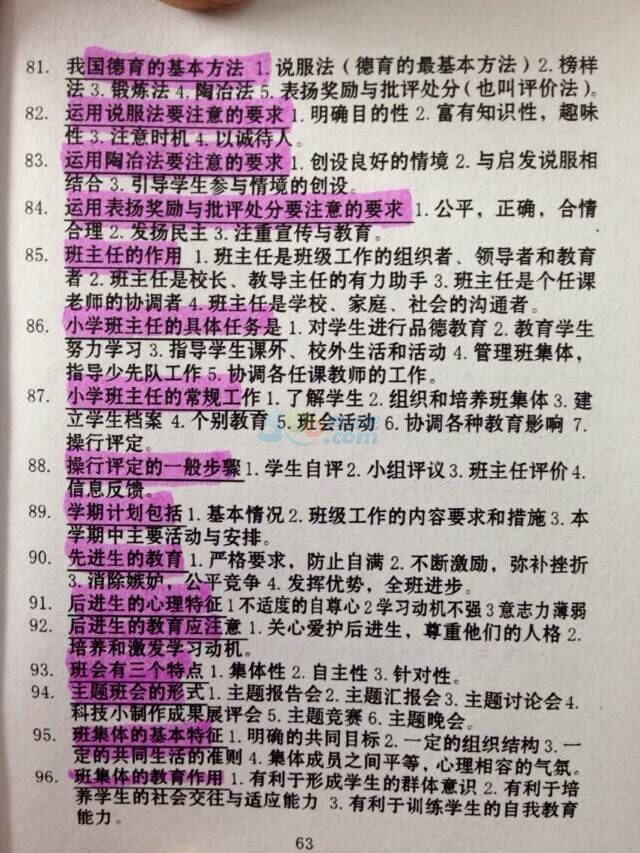 81. 我国德育的基本方法 1. 说服法（德育的最基本方法）2. 榜样
法 3. 锻炼法 4. 陶冶法 5. 表扬奖励与批评处分（也叫评价法）。
82. 运用说服法要注意的要求 1. 明确目的性 2. 富有知识性，趣味
性 3. 注意时机 4. 以诚待人。
83. 运用陶冶法要注意的要求 1. 创设良好的情境 2. 与启发说服相
结合 3. 引导学生参与情境的创设。
84. 运用表扬奖励与批评处分要注意的要求 1. 公平，正确，合情
合理 2. 发扬民主 3. 注重宣传与教育。
85. 班主任的作用 1. 班主任是班级工作的组织者、领导者和教育
者 2. 班主任是校长、教导主任的有力助手 3. 班主任是个任课
老师的协调者 4. 班主任是学校、家庭、社会的沟通者。
86. 小学班主任的具体任务是 1. 对学生进行品德教育 2. 教育学生
努力学习 3. 指导学生课外、校外生活和活动 4. 管理班集体，
指导少先队工作 5. 协调各任课教师的工作。
87. 小学班主任的常规工作 1. 了解学生 2. 组织和培养班集体 3. 建
立学生档案 4. 个别教育 5. 班会活动 6. 协调各种教育影响 7.
操行评定。
88. 操行评定的一般步骤 1. 学生自评 2. 小组评议 3. 班主任评价 4.
信息反馈。
89. 学期计划包括 1. 基本情况 2. 班级工作的内容要求和措施 3. 本
学期中主要活动与安排。
90. 先进生的教育 1. 严格要求，防止自满 2. 不断激励，弥补挫折
3. 消除嫉妒，公平竞争 4. 发挥优势，全班进步。
91. 后进生的心理特征 1 不适度的自尊心 2 学习动机不强 3 意志力薄弱
92. 后进生的教育应注意 1. 关心爱护后进生，尊重他们的人格 2.
培养和激发学习动机。
93. 班会有三个特点 1. 集体性 2. 自主性 3. 针对性。
94. 主题班会的形式 1. 主题报告会 2. 主题汇报会 3. 主题讨论会 4.
科技小制作成果展评会 5. 主题竞赛 6. 主题晚会。
95. 班集体的基本特征 1. 明确的共同目标 2. 一定的组织结构 3. 一
定的共同生活的准则 4. 集体成员之间平等，心理相容的气氛。
96. 班集体的教育作用 1. 有利于形成学生的群体意识 2. 有利于培
养学生的社会交往与适应能力 3. 有利于训练学生的自我教育
能力。
63